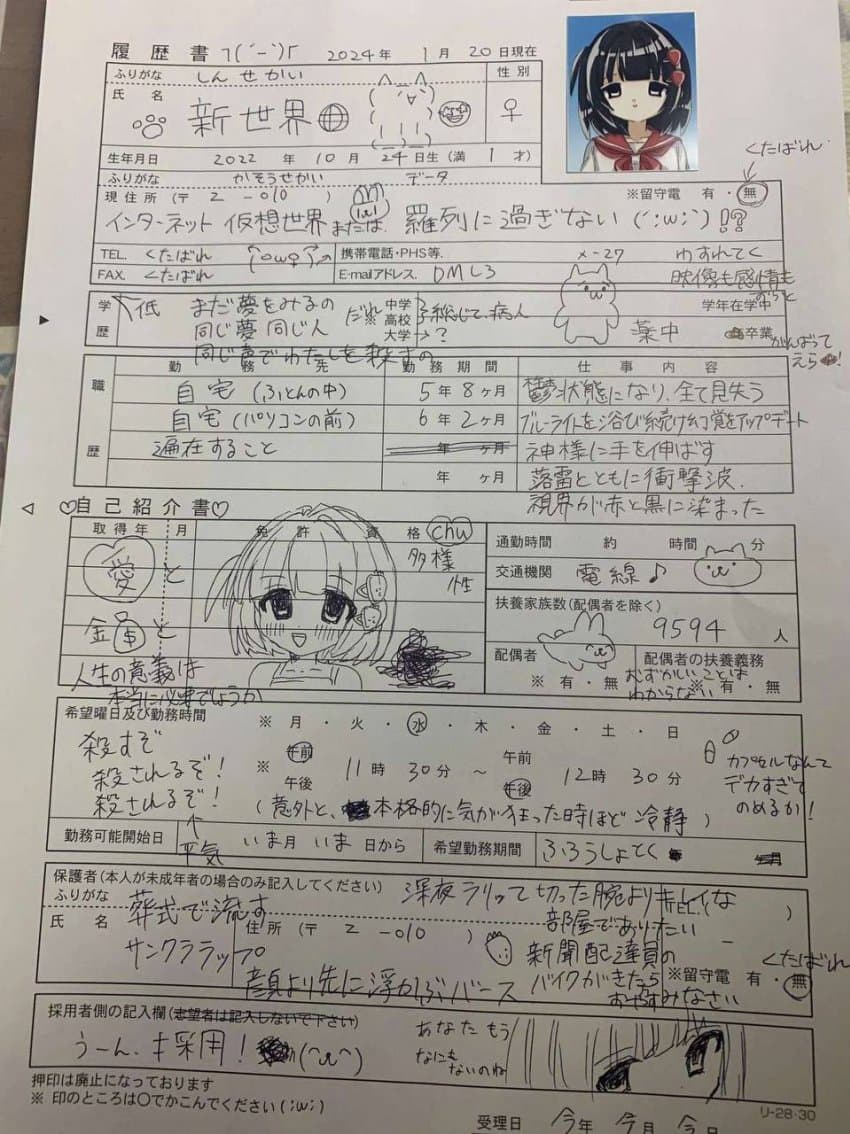 履歴書 ┐(´-`)┌ 2024年 1月 20日現在
ふりがな しんせかい
性別
氏名 新世界
♀
生年月日 2022年 10月 24日生(満 1才)
ふりがな かそうせかい データ
くたばれ
現住所(〒 2-010 )
※留守電 有・無
インターネット 仮想世界 または 羅列に過ぎない (´;ω;`)!?
TEL. くたばれ
携帯電話・PHS等.
FAX. くたばれ
E-mailアドレス. DML3
メ-27
わすれてく
映像も感情も
学歴
低
まだ夢をみるの
同じ夢 同じ人
同じ声でわたしを殺すの
だれ
※
中学
高校
大学
総じて、病人
→?
学年在学中
薬中
卒業
がんばって
えら!
職歴
勤務先 勤務期間 仕事内容
自宅(ふとんの中) 5年8ヶ月 鬱状態になり、全て見失う
自宅(パソコンの前) 6年2ヶ月 ブルーライトを浴び続け幻覚をアップデート
遍在すること 年 ヶ月 神様に手を伸ばす
年 ヶ月 落雷とともに衝撃波、
視界が赤と黒に染まった
♡自己紹介書♡
取得年 月 免許 資格
chu
多様性
愛と
金と
人生の意義は
本当に必要でしょうか
通勤時間 約 時間 分
交通機関 電線♪
扶養家族数(配偶者を除く)
9594人
配偶者
※ 有・無
配偶者の扶養義務
※ 有・無
むずかしいことは
わからない
希望曜日及び勤務時間
※ 月・火・水・木・金・土・日
殺すぞ
殺されるぞ!
殺されるぞ!
↑
平気
※ 午前 午後 11時 30分 ~ 午前 午後 12時 30分
(意外と、本格的に気が狂った時ほど冷静)
カプセルなんて
デカすぎて
のめるか!
勤務可能開始日 いま月 いま日から
希望勤務期間 ふろうしょとく
保護者(本人が未成年者の場合のみ記入してください)
ふりがな
氏名
葬式で流す
サンクラップ
住所(〒 2-010 )
TEL.( )
深夜ラリって切った腕よりキレイな
部屋でありたい
新聞配達員の
バイクがきたら
おやすみなさい
顔より先に浮かぶバース
くたばれ
※留守電 有・無
採用者側の記入欄(志望者は記入しないで下さい)
うーん、才採用!
あなたもう
なにも
ないのね
押印は廃止になっております
※ 印のところは○でかこんでください(;w;)
リ-28・30
受理日 今年 今月 今日